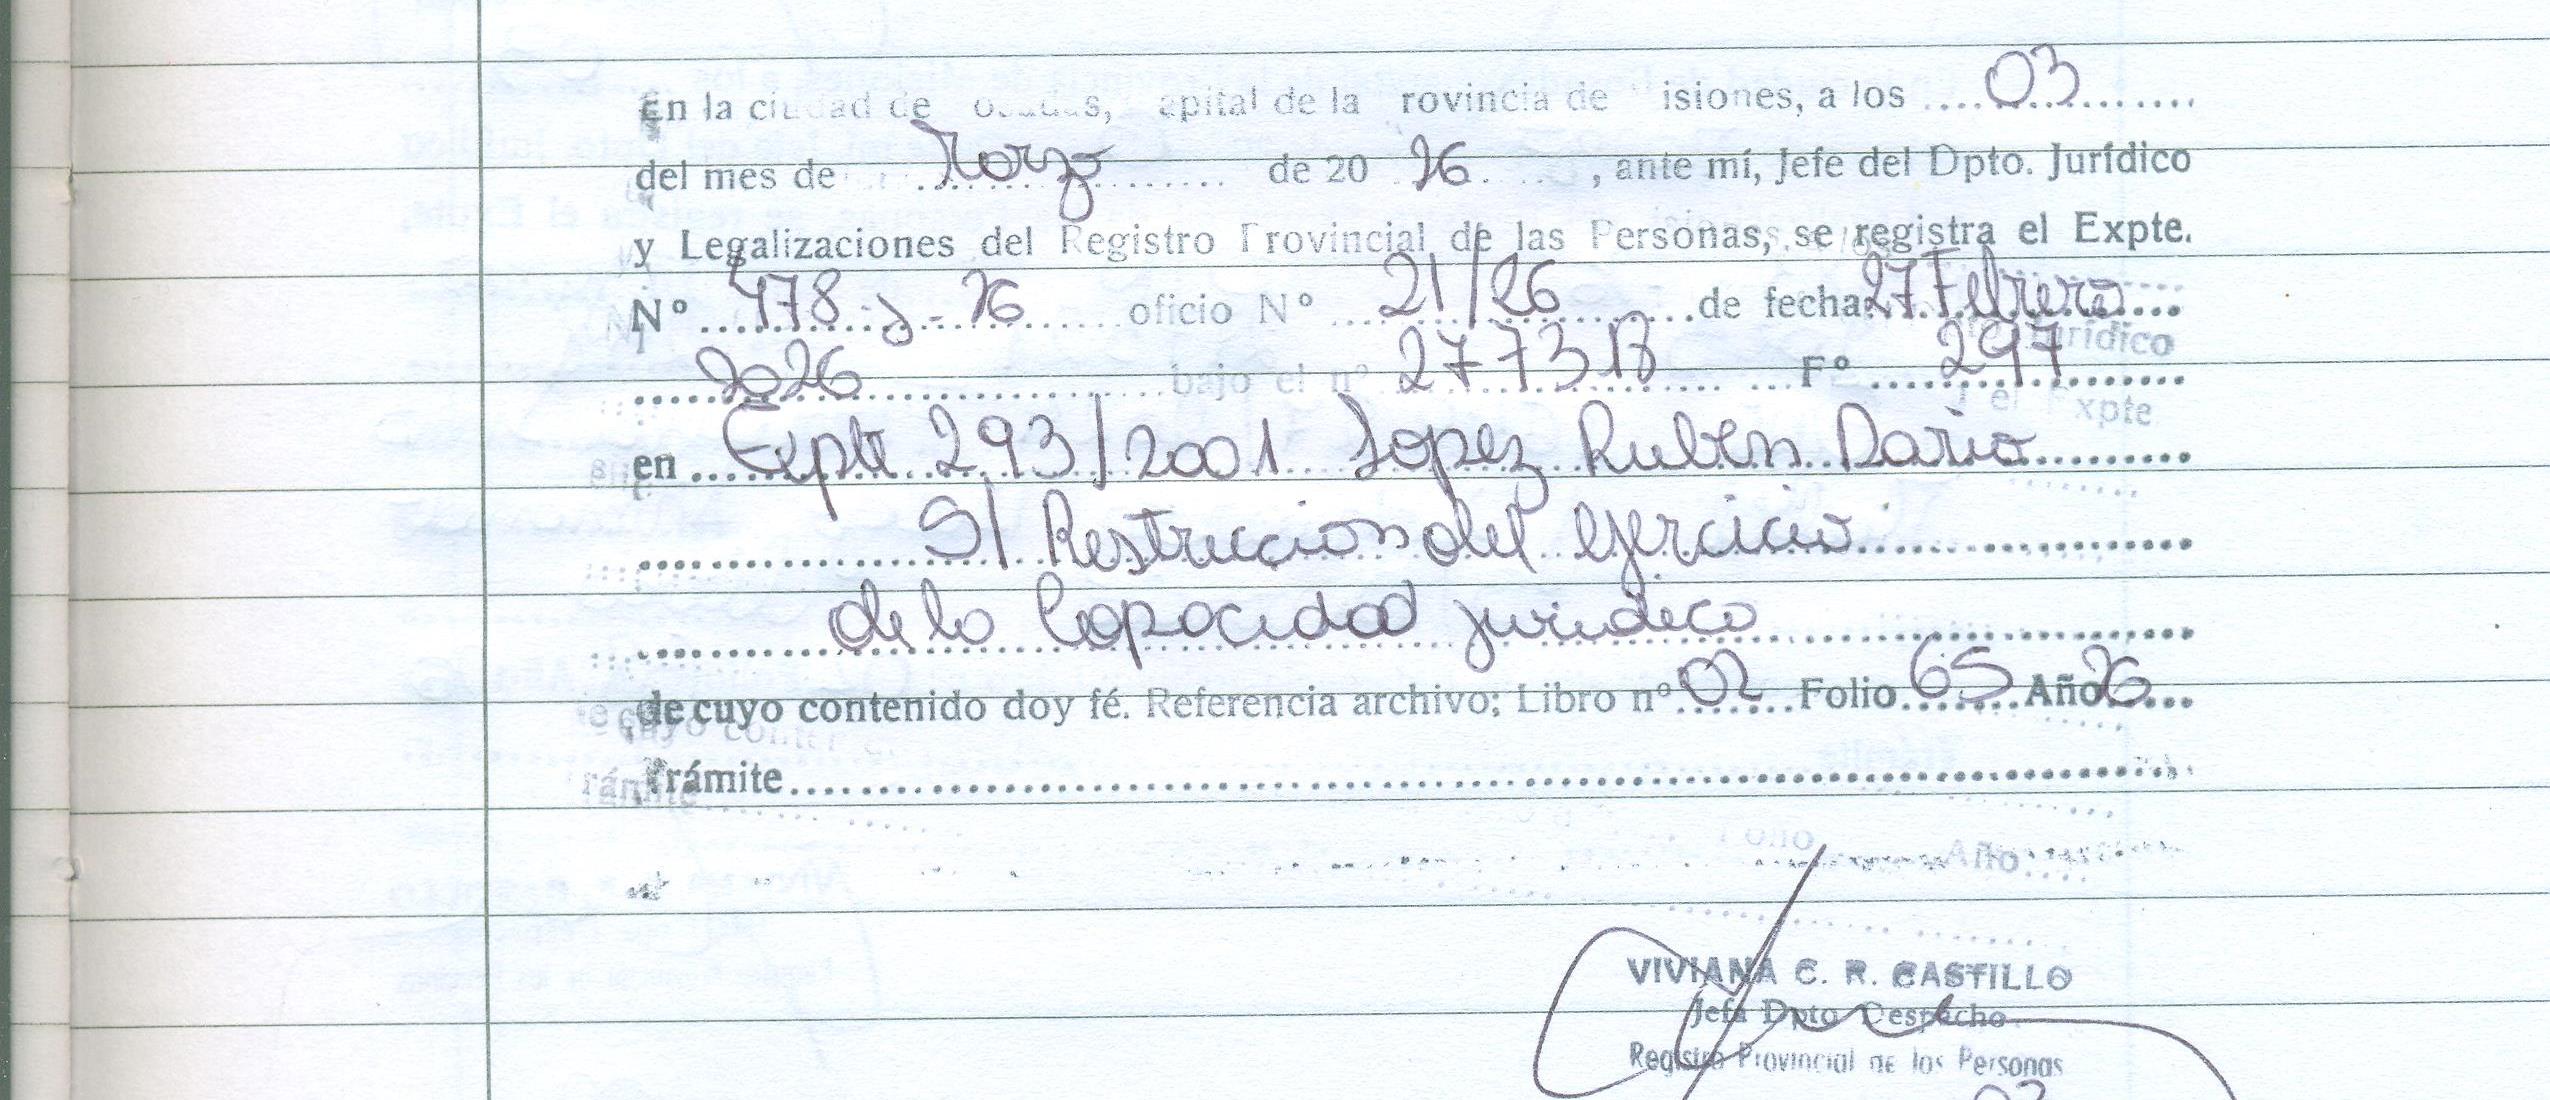 En la ciudad de osadas, apital de la rovincia de isiones, a los 03
del mes de Marzo de 20 26, ante mí, Jefe del Dpto. Jurídico
y Legalizaciones del Registro Provincial de las Personas, se registra el Expte.
Nº 478-J-26 oficio Nº 21/26 de fecha: 27 Febrero
2026 bajo el nº 2773 B Fº 297
en Expte 293/2001 Lopez Ruben Dario
S/ Restriccion del ejercicio
de la Capacidad juridica
de cuyo contenido doy fé. Referencia archivo; Libro nº 02 Folio 65 Año 26
Trámite
VIVIANA C. R. CASTILLO
Jefa Dpto Despacho
Registro Provincial de las Personas